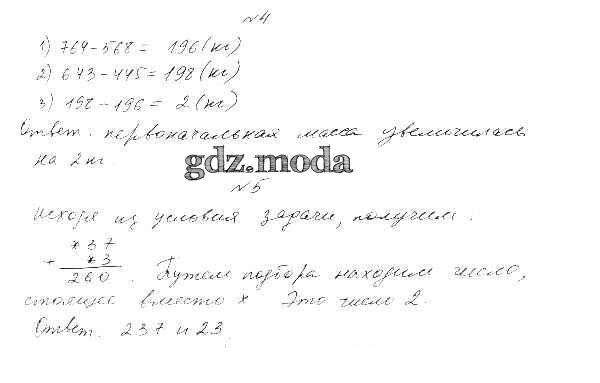 №4
1) 764-568= 196(кг)
2) 643-445=198(кг)
3) 198-196= 2(кг)
Ответ. первоначальная масса увеличилась
на 2кг.
gdz.moda
№5
исходя из условия задачи, получим.
*37
+ *3
260. Путем подбора находим число,
стоящее вместо * Это число 2.
Ответ. 237 и 23.